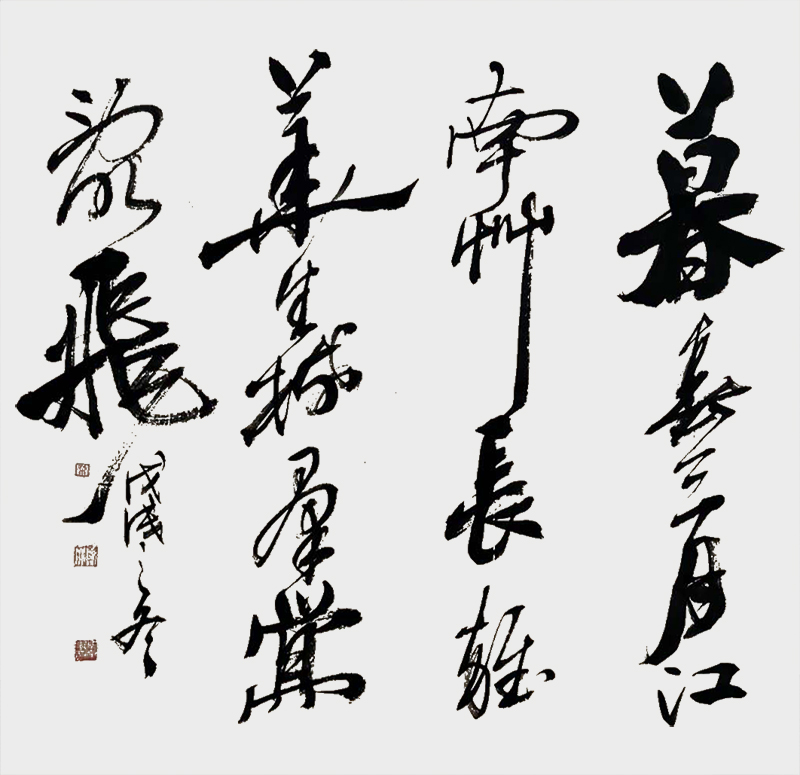 暮春三月江
南艸長雜
華生樹羣鶯
亂飛
戊戌之冬